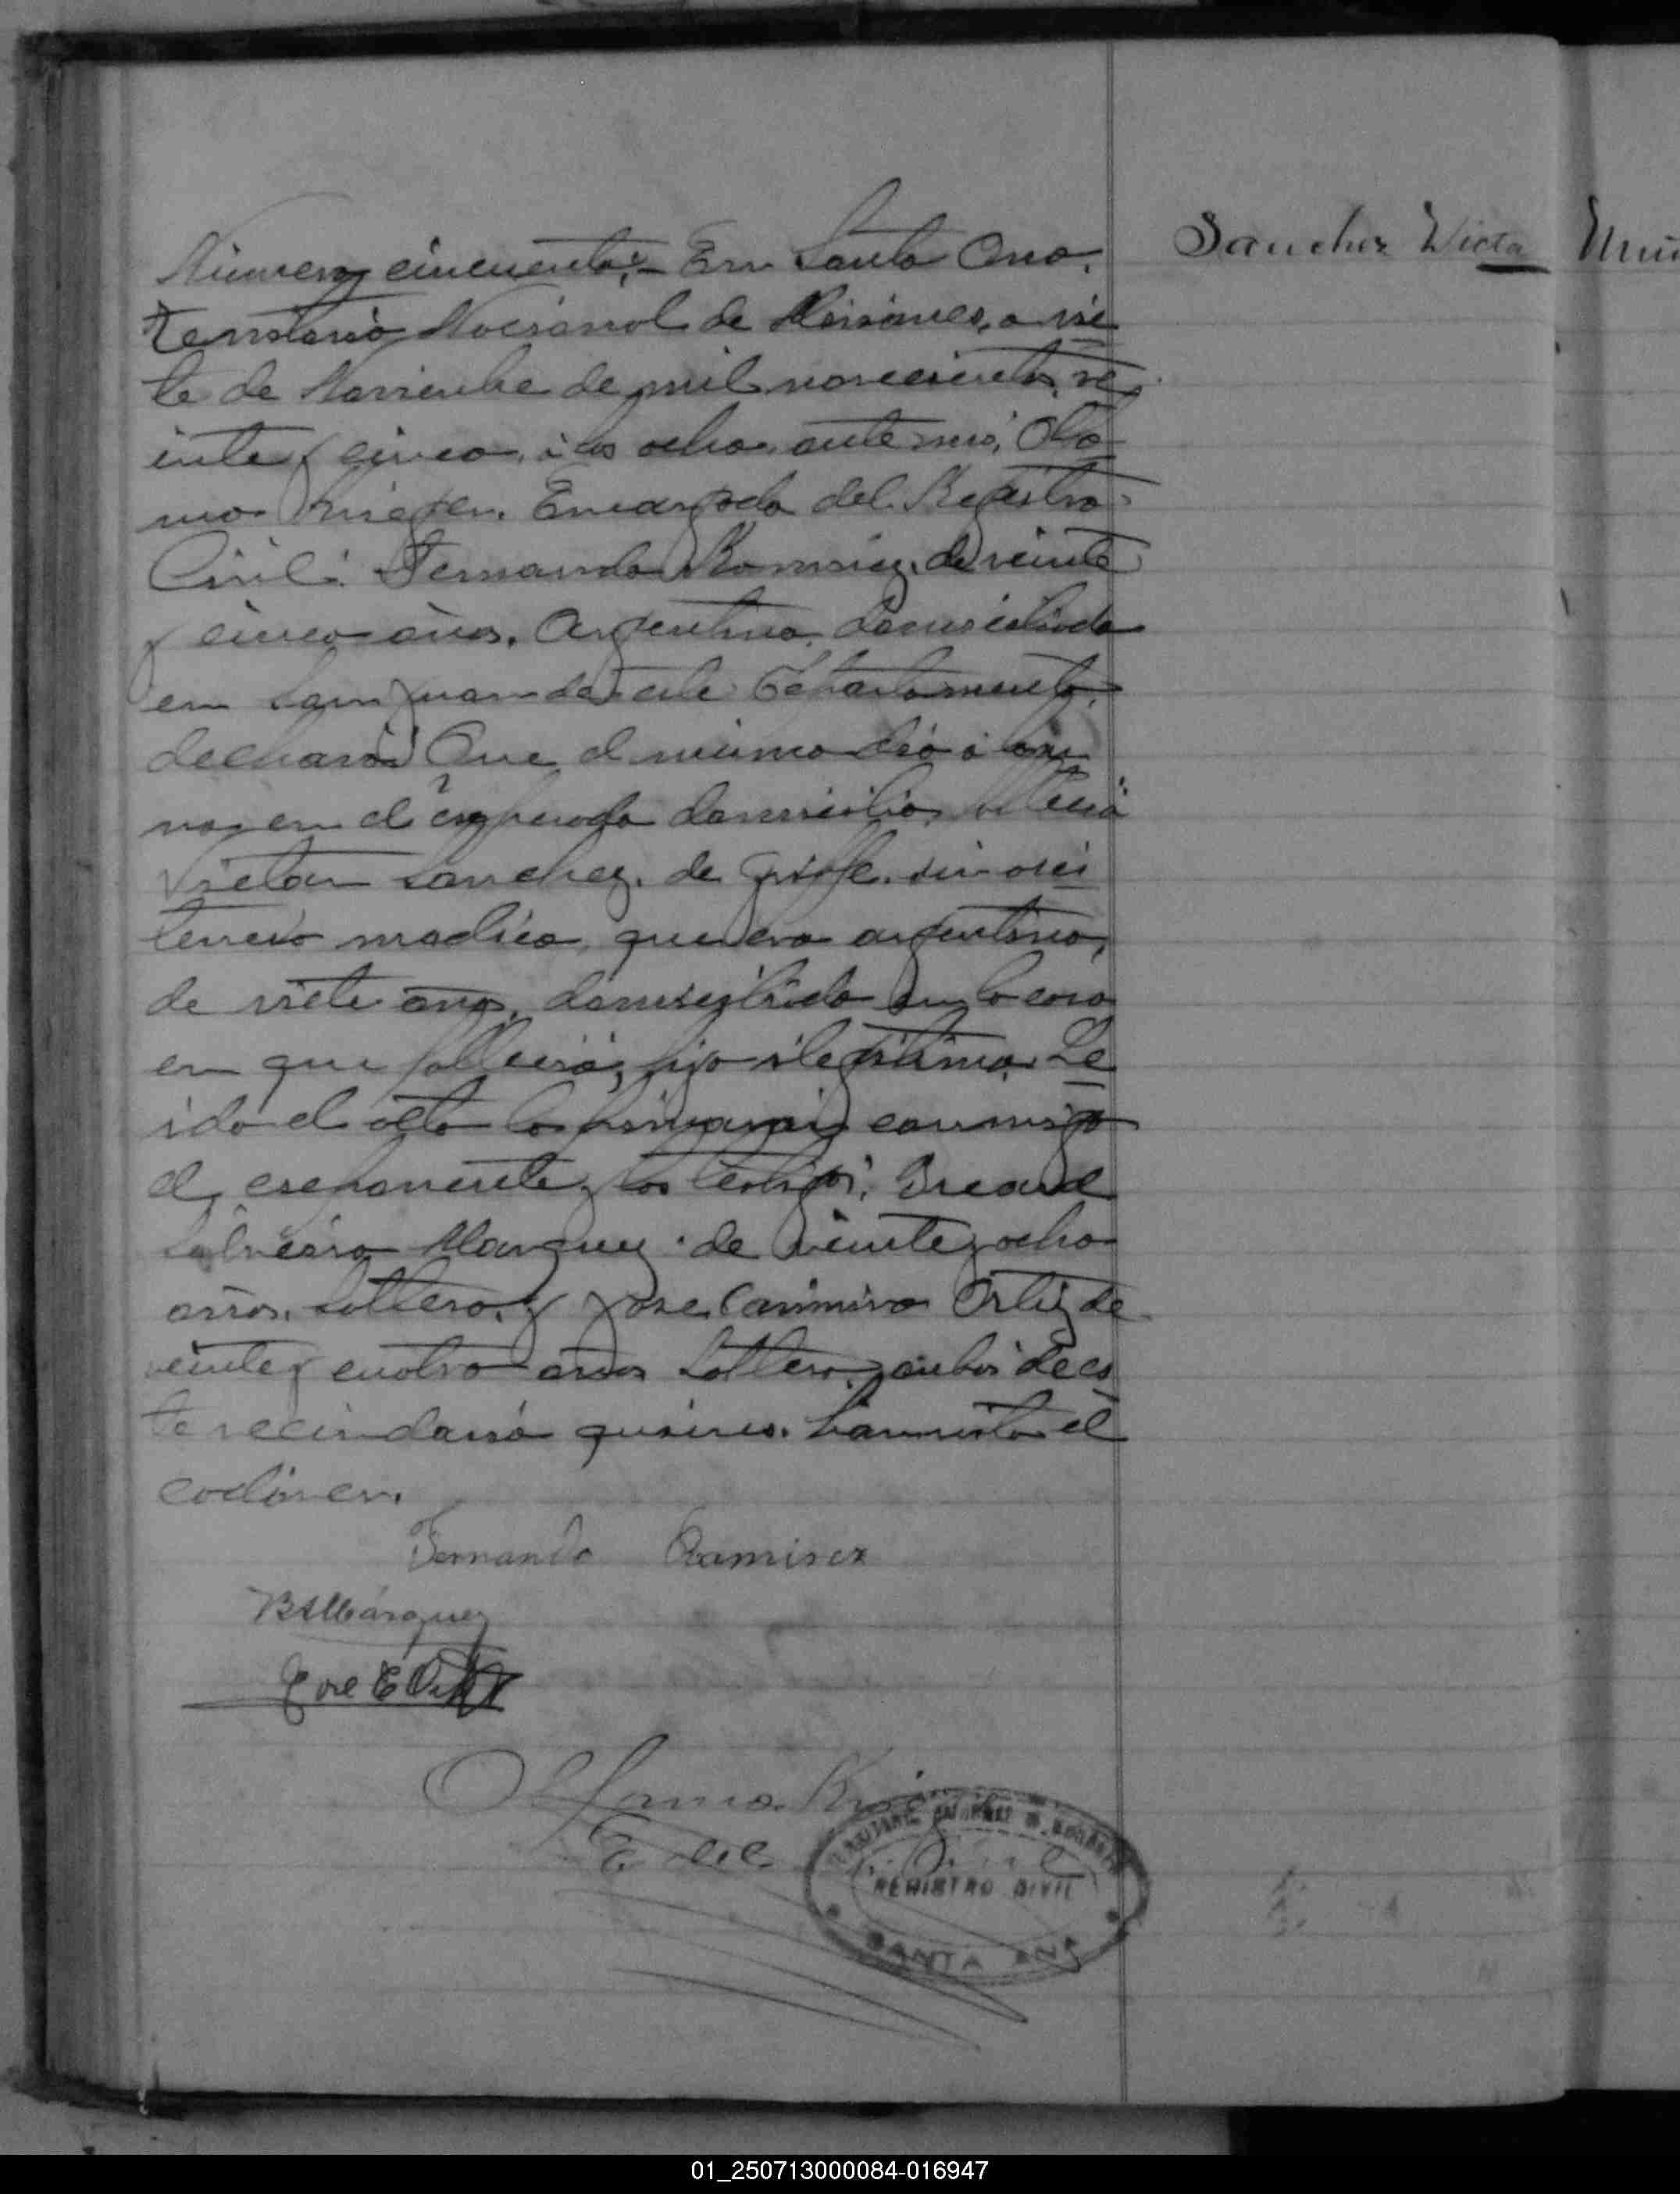 Sanchez Victa
Numero cincuenta.- En Santa Ana.
Territorio Nacional de Misiones, a sie
te de Noviembre de mil novecientos ve
inte y cinco, a las ocho, ante mi,
Encargado del Registro
Civil: Fernando Ramirez, de veinte
y cinco años. Argentino, domiciliado
en San Juan de este Departamento,
declaró: Que el mismo dia a las
en el domicilio falleció
Victar Sanchez, de gripe, sin asis
tencia medica, que era argentino,
de siete años, domiciliado en la casa
en que falleció, hijo ilegitimo. Le
ida el acta la firmaron conmigo
el exponente y los testigos,
Marquez de veinte y ocho
años, soltero, y Jose Casimiro Ortiz de
veinte y cuatro años soltero, ambos de es
te vecindario quienes han visto el
cadaver.
Fernando Ramirez
BSMárquez
Jose C Ortiz
E. del
R. Civil
REGISTRO CIVIL
SANTA ANA
01_250713000084-016947